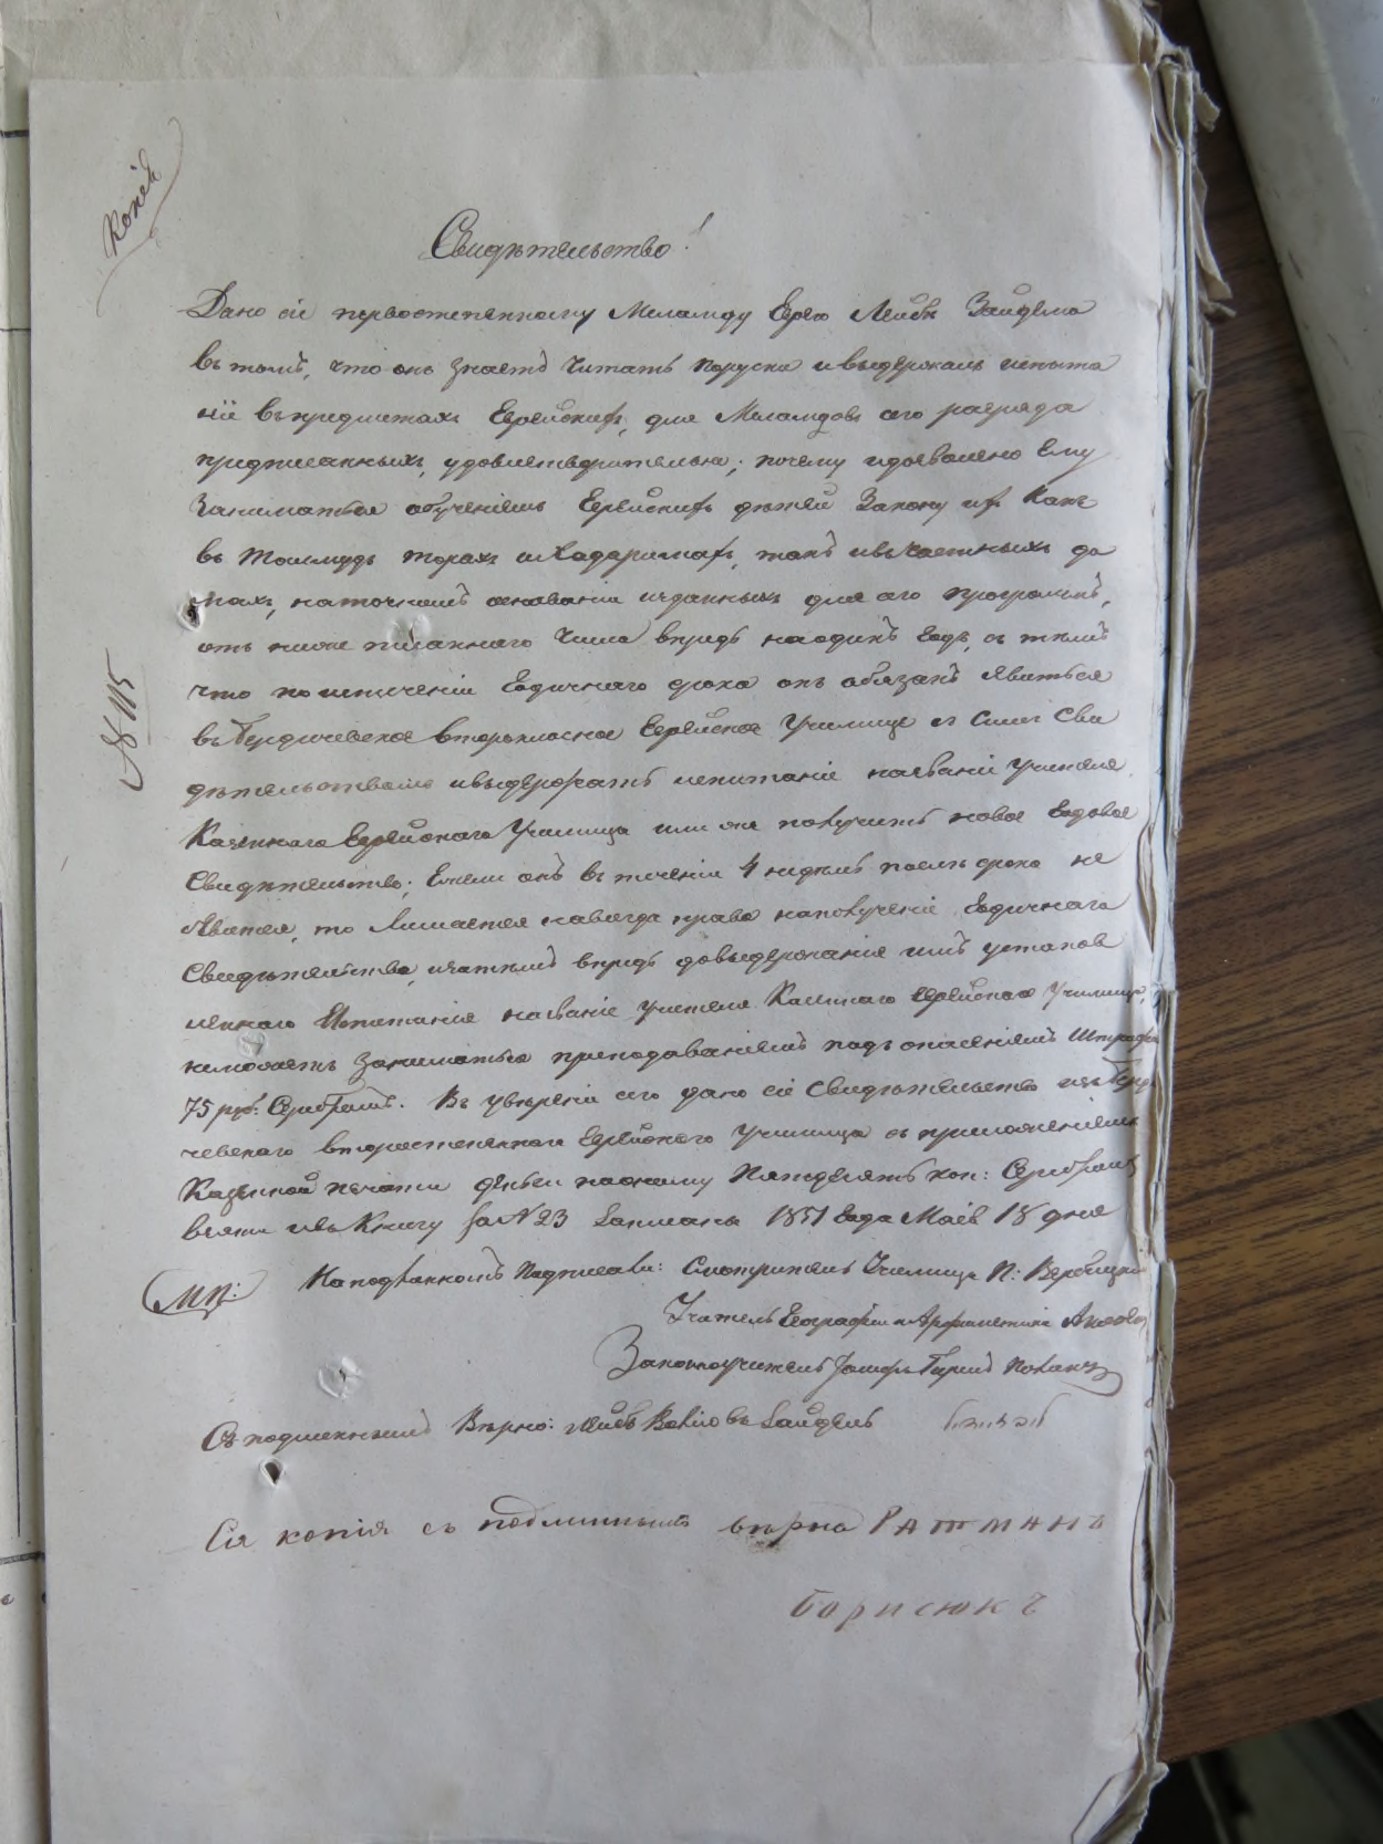 Копія
Свидѣтельство!
Дано сіе первостепенному Меламду Еврею Лейбѣ Зайделю
въ томъ, что онъ знаетъ читать поруски и выдержалъ испыта
ніе въ предметахъ Еврейскихъ, для Меламдовъ сего разряда
предписанныхъ, удовлетворительно; почему и дозволено Ему
заниматься обученіемъ Еврейскихъ дѣтей Закону ихъ какъ
въ Толмудъ Торахъ и Хадаримахъ, такъ и въ частныхъ до
махъ, на точномъ основаніи изданныхъ для сего программъ,
отъ ниже писаннаго числа впредь на одинъ годъ, съ тѣмъ
что по истеченіи Годичнаго срока онъ обязанъ явиться
въ Бердичевское второклассное Еврейское Училище съ симъ Сви
дѣтельствомъ и выдержать испытаніе на званіе Учителя
Казеннаго Еврейскаго Училища или же получить новое Годовое
Свидѣтельство; Ежели онъ въ теченіи 4 недѣль послѣ срока не
явится, то лишается навсегда права на полученіе Годичнаго
Свидѣтельства, и затѣмъ впредь до выдержанія имъ установ
леннаго Испытанія на званіе Учителя Казеннаго Еврейскаго Училища,
не можетъ заниматься преподаваніемъ подъ опасеніемъ Штрафа
75 руб: Серебромъ. Въ увѣреніи сего дано сіе Свидѣтельство изъ Берди
чевскаго второстепеннаго Еврейскаго Училища съ приложеніемъ
Казенной печати деньги по оному Пятдесятъ коп: Серебромъ
взяты и въ Книгу за N 23 записаны 1851 Года Маія 18 дня
№ 115
МП:
На подлинномъ Подписали: Смотритель Училища П:
Учитель Географіи и Арифметики
Законоучитель
Съ подлиннымъ Вѣрно: Лейбъ Зайдель
Сія копія съ подлиннымъ вѣрна Ратманъ
Борисюкъ